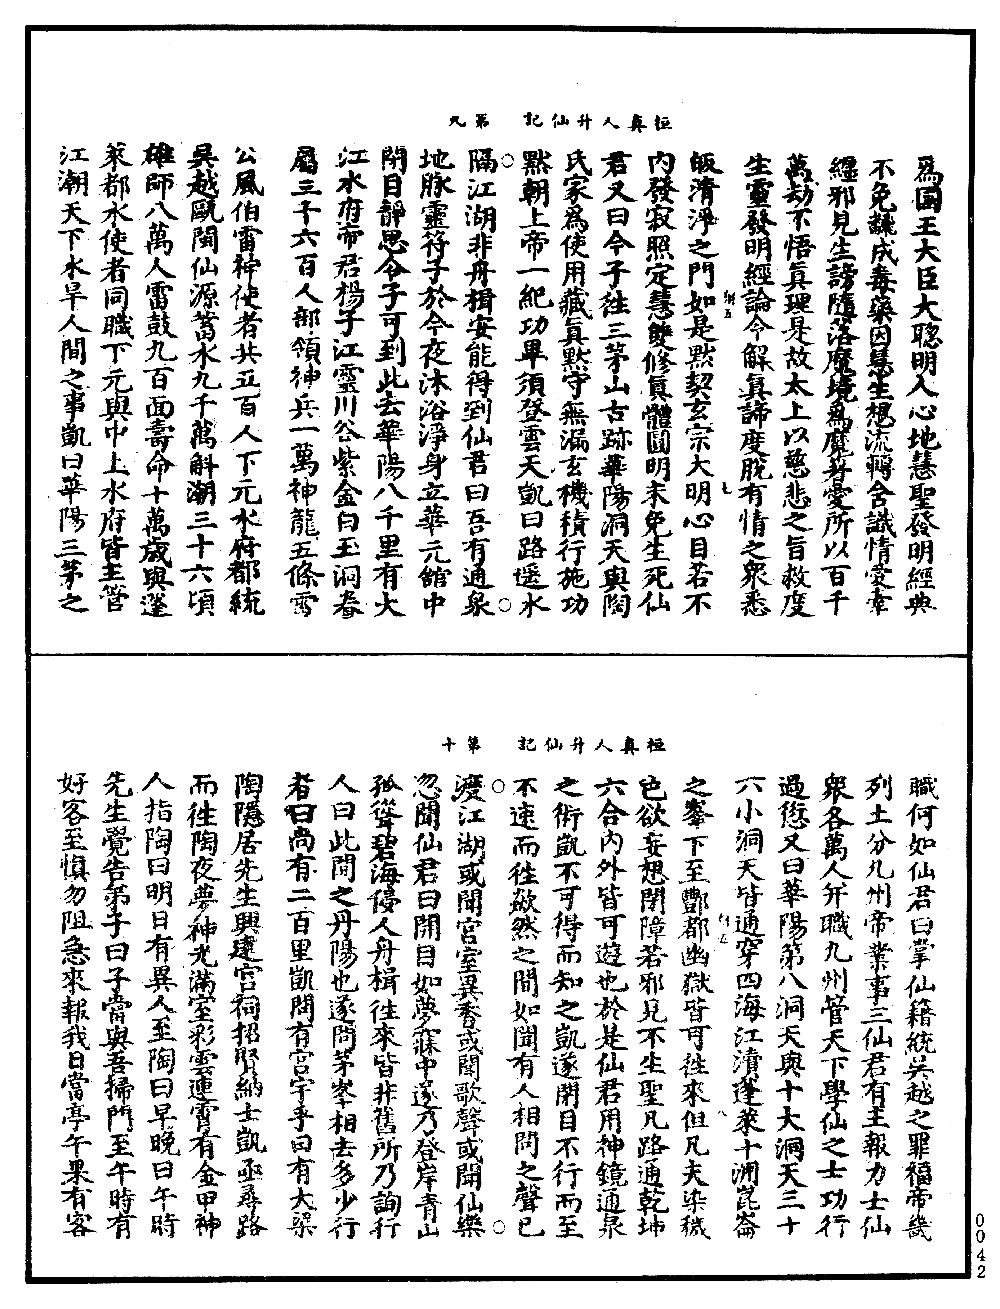 桓真人升仙記　第九
爲國王大臣大聰明人心地慧聖發明經典
不免讖成毒藥因慧生想流轉含識情愛牽
纏邪見生謗隨落魔境爲魔着愛所以百千
萬劫不悟真理是故太上以慈悲之旨救度
生靈發明經論令解真諦度脫有情之衆悉
皈清淨之門如是默契玄宗大明心目若不
内發寂照定慧雙修真體圓明未免生死仙
君又曰今子往三茅山古跡華陽洞天與陶
氏家爲使用藏真默守無漏玄機積行施功
默朝上帝一紀功畢須登雲天凱曰路遥水
隔江湖非舟楫安能得到仙君曰吾有通泉
地脉靈符子於今夜沐浴淨身立華元舘中
閉目靜思令子可到此去華陽八千里有大
江水府帝君楊子江靈川谷紫金白玉洞眷
屬三千六百人部領神兵一萬神龍五條雷
公風伯雷神使者共五百人下元水府都統
吳越甌閩仙源蓄水九千萬斛潮三十六頃
雄師八萬人雷鼓九百面壽命十萬歲與蓬
萊都水使者同職下元與中上水府皆主管
江潮天下水旱人間之事凱曰華陽三茅之
桓真人升仙記　第十
職何如仙君曰掌仙籍統吳越之罪福帝畿
列土分九州帝業事三仙君有主報力士仙
衆各萬人并職九州管天下學仙之士功行
過愆又曰華陽第八洞天與十大洞天三十
六小洞天皆通穿四海江瀆蓬萊十洲崑崙
之峯下至酆都幽獄皆可往來但凡夫染穢
色欲妄想閉障若邪見不生聖凡路通乾坤
六合内外皆可遊也於是仙君用神鏡通泉
之術凱不可得而知之凱遂閉目不行而至
不速而往歘然之間如聞有人相問之聲已
渡江湖或聞宮室異香或聞歌聲或聞仙樂
忽聞仙君曰開目如夢寐中遂乃登岸青山
孤聳碧海侵人舟楫往來皆非舊所乃詢行
人曰此間之丹陽也遂問茅峯相去多少行
者曰尚有二百里凱問有宮宇乎曰有大梁
陶隱居先生興建宮祠招賢納士凱亟尋路
而往陶夜夢神光滿室彩雲連霄有金甲神
人指陶曰明日有異人至陶曰早晚曰午時
先生覺告弟子曰子當與吾掃門至午時有
好客至慎勿阻急來報我日當亭午果有客
0042